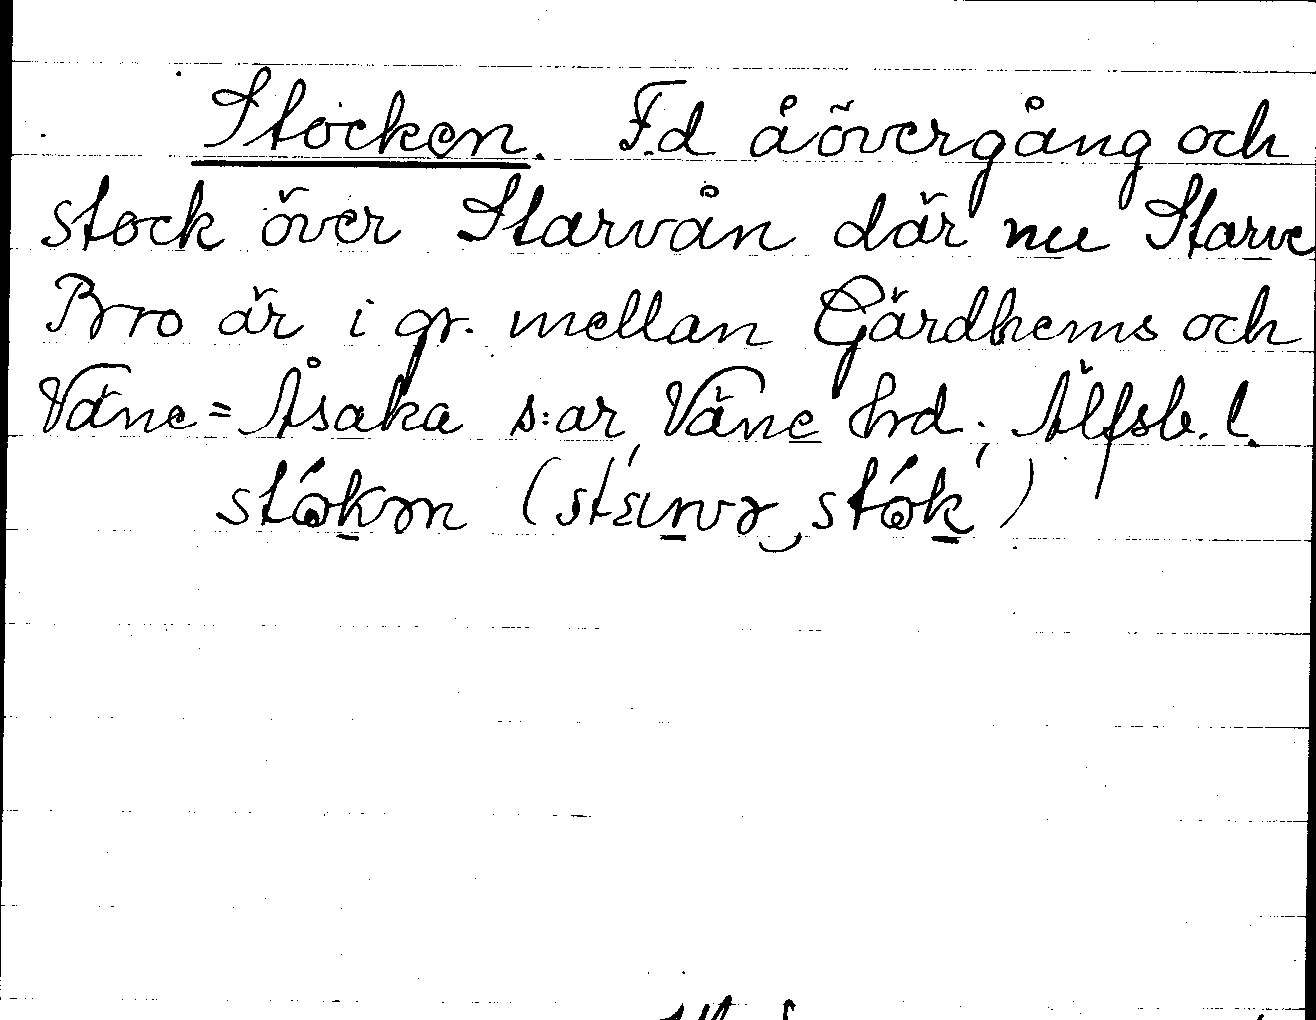 Stocken. F.d åövergång och
stock över Starvån där nu Starve
Bro är i gr. mellan Gärdhems och
Väne=Åsaka s:ar, Väne hrd; Älfsb. l.